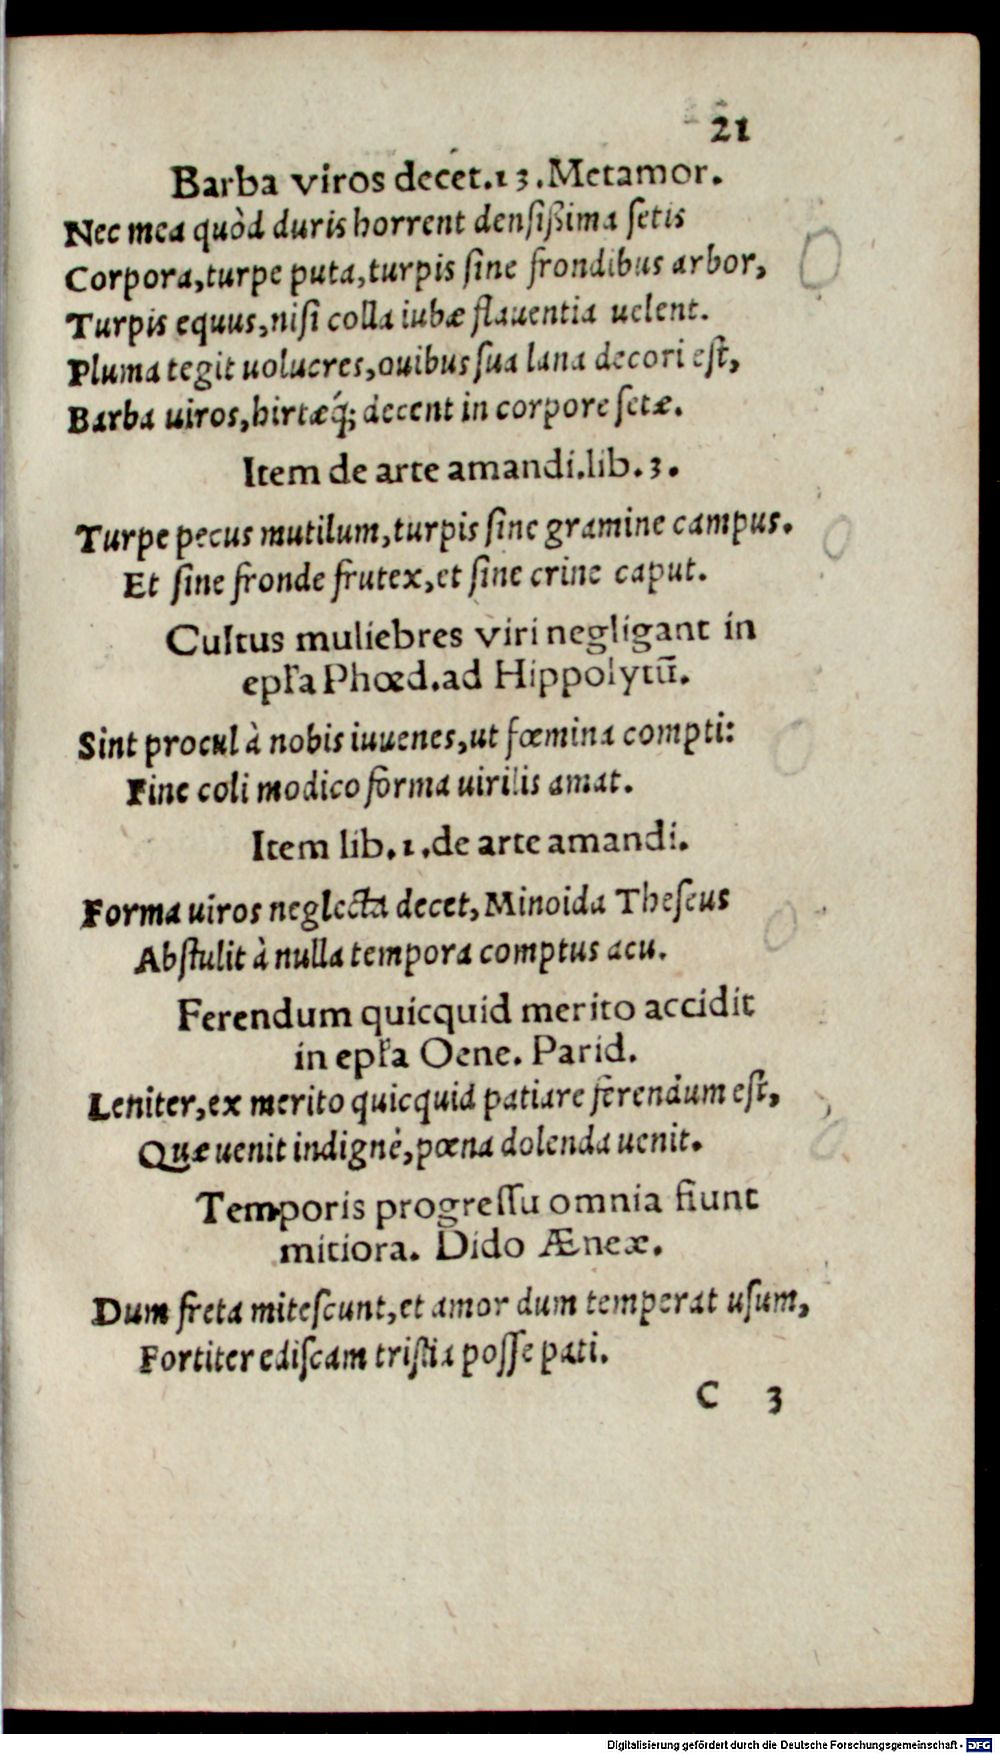 21
Barba viros decet.13.Metamor.
Nec mea quòd duris horrent densißima setis
Corpora,turpe puta,turpis sine frondibus arbor,
Turpis equus,nisi colla iubæ flauentia uelent.
Pluma tegit uolucres,ouibus sua lana decori est,
Barba uiros,hirtæq́; decent in corpore setæ.
Item de arte amandi.lib.3.
Turpe pecus mutilum,turpis sine gramine campus.
Et sine fronde frutex,et sine crine caput.
Cultus muliebres viri negligant in
epľa Phœd.ad Hippolytū.
Sint procul à nobis iuuenes,ut fœmina compti:
Fine coli modico forma uirilis amat.
Item lib.1.de arte amandi.
Forma uiros neglecta decet, Minoida Theseus
Abstulit à nulla tempora comptus acu.
Ferendum quicquid merito accidit
in epľa Oene. Parid.
Leniter,ex merito quicquid patiare ferendum est,
Quæ uenit indignè,pœna dolenda uenit.
Temporis progressu omnia fiunt
mitiora. Dido Æneæ.
Dum freta mitescunt,et amor dum temperat usum,
Fortiter ediscam tristia posse pati.
C 3
Digitalisierung gefördert durch die Deutsche Forschungsgemeinschaft - DFG